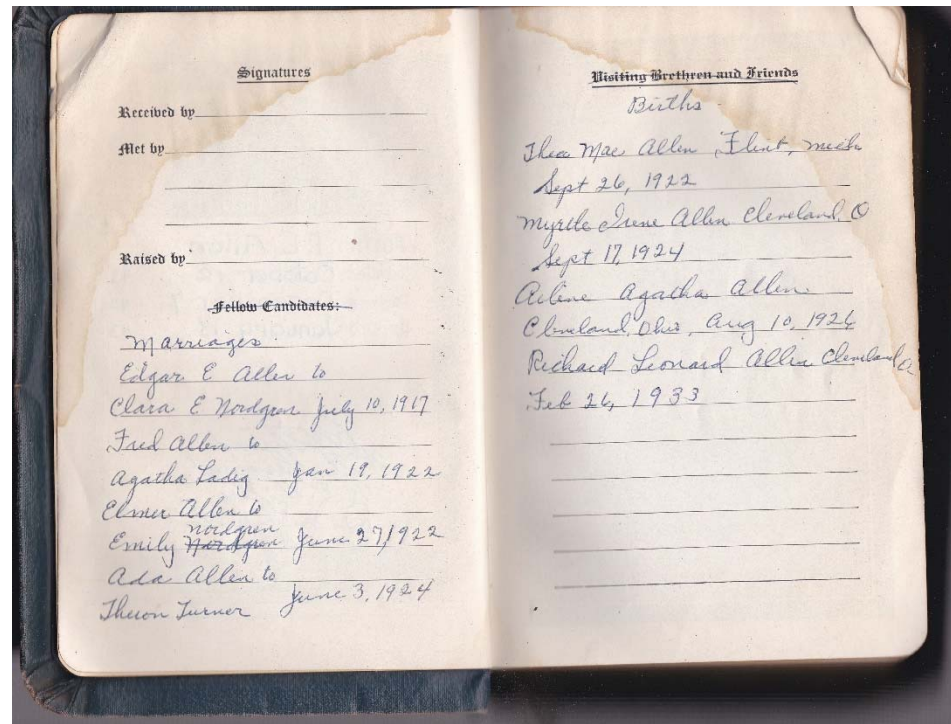 Signatures
Received by
Met by
Raised by
Fellow Candidates:
Marriages
Edgar E Allen to
Clara E Nordgren July 10, 1917
Fred Allen to
Agatha Ladig Jan 19, 1922
Elmer Allen to
Nordgren
Emily Nordgren June 27, 1922
Ada Allen to
Theron Turner June 3, 1924
Visiting Brethren and Friends
Births
Thea Mae Allen, Flint, Mich
Sept 26, 1922
Myrtle Irene Allen Cleveland O
Sept 17, 1924
Arlene Agatha Allen
Cleveland, Ohio, Aug 10, 1926
Richard Leonard Allen Cleveland O
Feb 26, 1933